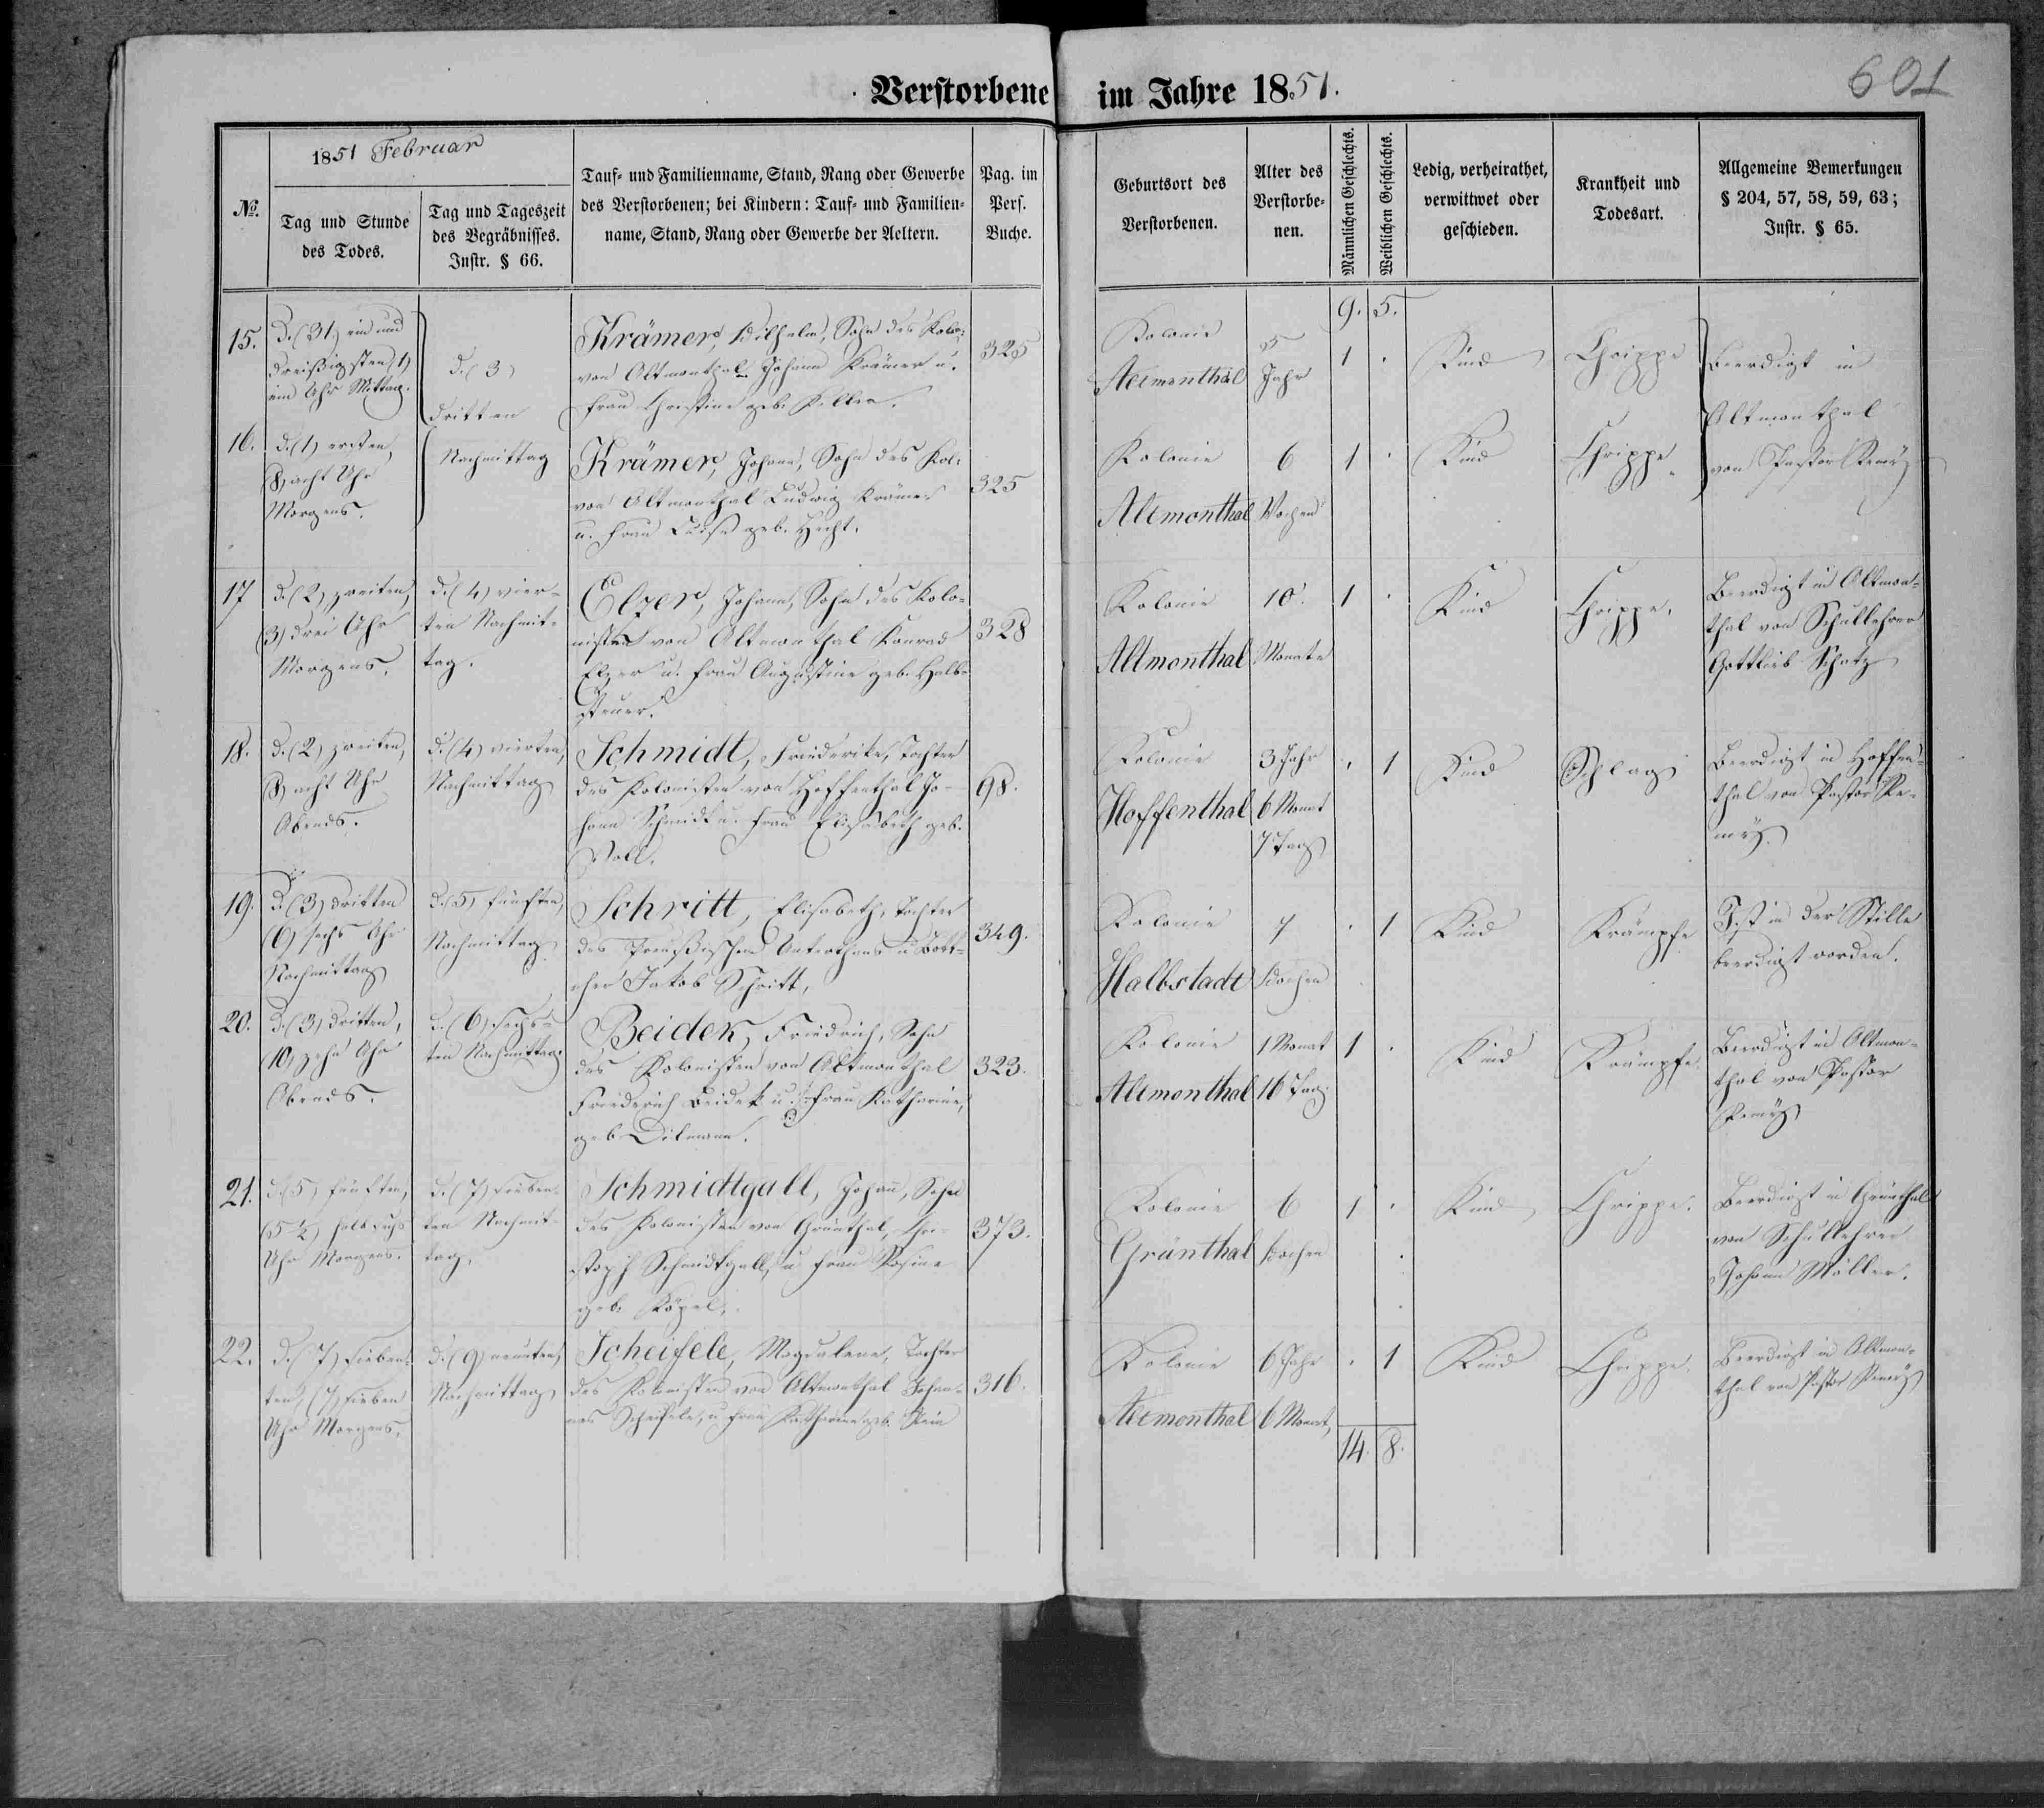 Verstorbene im Jahre 1851.
601
№.
1851 Februar
Tag und Stunde
des Todes.
Tag und Tageszeit
des Begräbnisses.
Instr. § 66.
Tauf- und Familienname, Stand, Rang oder Gewerbe
des Verstorbenen; bei Kindern: Tauf- und Familien-
name, Stand, Rang oder Gewerbe der Aeltern.
Pag. im
Pers.
Buche.
Geburtsort des
Verstorbenen.
Alter des
Verstorbe-
nen.
Männlichen Geschlechts.
Weiblichen Geschlechts.
Ledig, verheirathet,
verwittwet oder
geschieden.
Krankheit und
Todesart.
Allgemeine Bemerkungen
§ 204, 57, 58, 59, 63;
Instr. § 65.
9. 5.
15.
D. (31) ein und
dreißigsten (1)
ein Uhr Mittag.
d. (3)
dritten
Nachmittag
Krämer, Wilhelm, Sohn des Kolo:
von Altmonthal Johann Krämer u.
Frau Christine geb. Keller.
325
Kolonie
Altmonthal
5
Jahr
1 .
Kind
Chrippe
Beerdigt in
Altmonthal
von Pastor Remÿ
16.
d. (1) ersten,
(8) acht Uhr
Morgens.
Krämer, Johann, Sohn des Kol:
von Altmonthal Ludwig Krämer
u. Frau Luise geb. Hecht.
325
Kolonie
Altmonthal
6
Wochen
1 .
Kind
Chrippe
17
d. (2) zweiten,
(3) drei Uhr
Morgens.
d. (4) vier-
ten Nachmit-
tag.
Elzer, Johann, Sohn des Kolo-
nisten von Altmonthal Konrad
Elzer u. Frau Augustine geb. Halb-
steuer.
328
Kolonie
Altmonthal
10.
Monate
1 .
Kind
Chrippe.
Beerdigt in Altmon-
thal von Schullehrer
Gottlieb Schatz
18.
d. (2) zweiten,
(8) acht Uhr
Abends.
d. (4) vierten,
Nachmittag
Schmidt, Friederike, Tochter
des Kolonisten von Hoffenthal Jo-
hann Schmidt u. Frau Elisabeth geb.
Voll.
98.
Kolonie
Hoffenthal
3 Jahr
6 Monat
7 Tag
. 1
Kind
Schlag
Beerdigt in Hoffen-
thal von Pastor Re-
mÿ.
19.
D. (3) dritten
(6) sechs Uhr
Nachmittag
d. (5) fünften,
Nachmittag
Schritt, Elisabeth, Tochter
des Preußischen Unterthans u Bött-
cher Jakob Schritt,
349.
Kolonie
Halbstadt
7
Wochen
. 1
Kind
Krämpfe
Ist in der Stille
beerdigt worden.
20.
D. (3) dritten,
(10) zehn Uhr
Abends.
d. (6) sechs-
ten Nachmittag.
Beidek, Friedrich, Sohn
des Kolonisten von Altmonthal
Friederich Beidek u. Frau Katharine,
geb. Dilmann.
323.
Kolonie
Altmonthal
1 Monat
16 Tag.
1 .
Kind
Krämpfe.
Beerdigt in Altmon-
thal von Pastor
Remÿ
21.
d. (5) fünften,
(5 ½) halb sechs
Uhr Morgens.
d. (7) sieben-
ten Nachmit-
tag.
Schmidtgall, Johann, Sohn
des Kolonisten von Grünthal, Chri-
stoph Schmidtgall, u Frau Rosine
geb.
373.
Kolonie
Grünthal
6
Wochen
1 .
Kind
Chrippe.
Beerdigt in Grünthal
von Schullehrer
Johann Müller.
22.
d. (7) sieben-
ten, (7) sieben
Uhr Morgens.
d. (9) neunten,
Nachmittag
Scheifele, Magdalena, Tochter
des Kolonisten von Altmonthal Johan-
nes Scheifele, u Frau Katharine geb.
316.
Kolonie
Altmonthal
6 Jahr
6 Monat,
. 1
Kind
Chrippe.
Beerdigt in Altmon-
thal von Pastor Remÿ
14. 8.